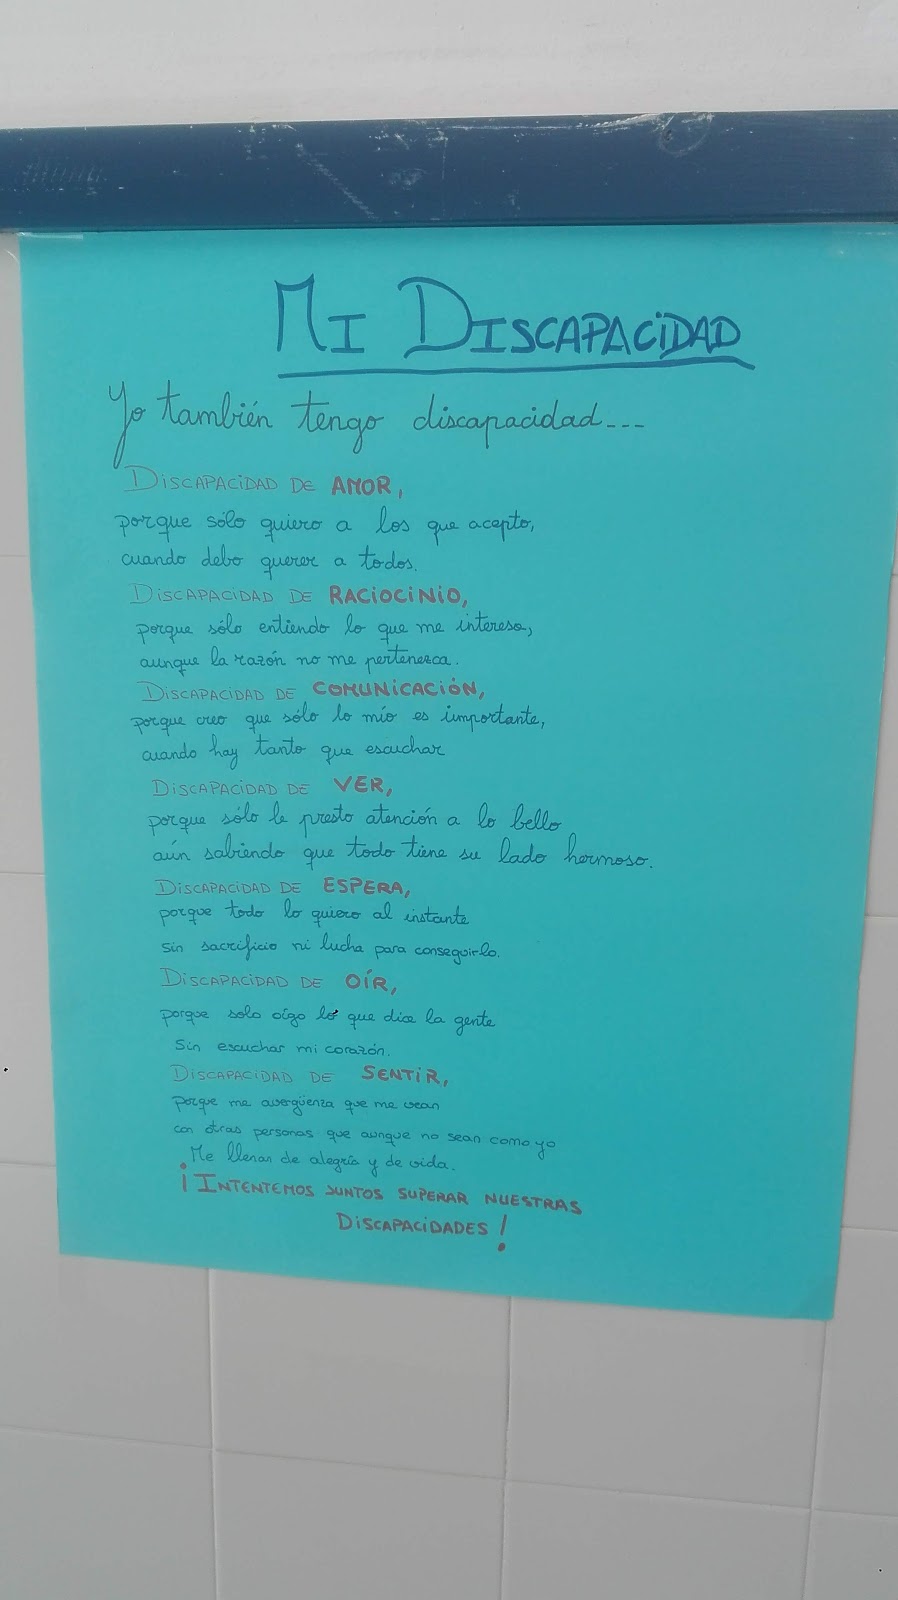 MI DISCAPACIDAD
Yo también tengo discapacidad...
DISCAPACIDAD DE AMOR,
porque sólo quiero a los que acepto,
cuando debo querer a todos.
DISCAPACIDAD DE RACIOCINIO,
porque sólo entiendo lo que me interesa,
aunque la razón no me pertenezca.
DISCAPACIDAD DE COMUNICACIÓN,
porque creo que sólo lo mío es importante,
cuando hay tanto que escuchar
DISCAPACIDAD DE VER,
porque sólo le presto atención a lo bello
aún sabiendo que todo tiene su lado hermoso.
DISCAPACIDAD DE ESPERA,
porque todo lo quiero al instante
sin sacrificio ni lucha para conseguirlo.
DISCAPACIDAD DE OÍR,
porque solo oígo lo que dice la gente
Sin escuchar mi corazón.
DISCAPACIDAD DE SENTIR,
porque me avergüenza que me vean
con otras personas que aunque no sean como yo
Me llenan de alegría y de vida.
¡INTENTEMOS JUNTOS SUPERAR NUESTRAS
DISCAPACIDADES!